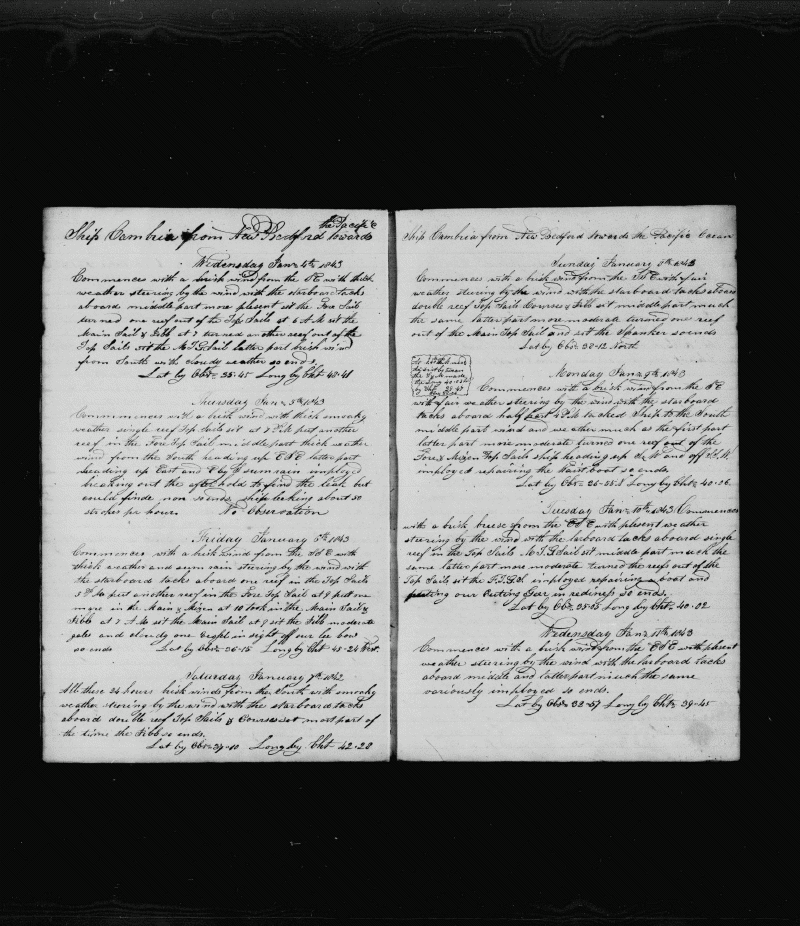 Ship Cambria from New Bedford towards the Pacific
Wedensday Janr 4th 1843
Commences with a brisk wind from the SE with thick
weather steering by the wind with the starboard tacks
aboard middle part more plesent sit the Fore Sail
turned one reef out of the Top Sails at 6 A M sit the
Main Sail & Jibb at 7 turned another reef out of the
Top Sails sit the M T G Sail latter part brisk wind
from South with cloudy weather so ends
Lat by Obs 35-45 Long by Cht 48-41
Thursday Janr 5th 1843
Commences with a brisk wind with thick smoky
weather single reef Top Sails sit at 7 P M put another
reef in the Fore Top Sail middle part thick weather
wind from the South heading up ESE latter part
heading up East and E by S sum rain imployed
breaking out the after hold to find the leak but
could finde non so ends ship leeking about 50
strokes pr hour No Observation
Friday January 6th 1843
Commences with a brisk wind from the SSE with
thick weather and sum rain steering by the wind with
the starboard tacks aboard one reef in the Top Sails
5 P M put another reef in the Fore Top Sail at 9 put one
more in the Main & Mizen at 10 took in the Main Sail &
Jibb at 7 A M sit the Main Sail at 9 sit the Jibb moderate
gales and cloudy one vessel in sight off our lee bow
so ends Lat by Obs 36-15 Long by Cht 45-24 West
Saturday January 7th 1843
All these 24 hours brisk winds from the South with smoky
weather steering by the wind with the starboard tacks
aboard double reef Top Sails & Courses sit most part of
the time the Jibb so ends
Lat by Obs 37-10 Long by Cht 42-28
Ship Cambria from New Bedford towards the Pacific Ocean
Sunday January 8th 1843
Commences with a brisk wind from the with fair
weather steering by the wind with the starboard tacks aboard
double reef Top Sails Courses & Jibb sit middle part much
the same latter part more moderate turned one reef
out of the Main Top Sail and sit the Spanker so ends
Lat by Obs 38-12 North
Monday Janr 9th 1843
Commences with a brisk wind from the SE
with fair weather steering by the wind with the starboard
tacks aboard half past 4 P M tacked Ship to the South
middle part wind and weather much as the first part
latter part more moderate turned one reef out of the
Fore & Mizen Top Sails ship heading up and off
imployed repairing the Waist boat so ends
Lat by Obs Long by Cht 40-26
Tuesday Janr 10th 1843 Commences
with a brisk breese from the ESE with plesent weather
steering by the wind with the larboard tacks aboard single
reef in the Top Sails M T G Sail sit middle part much the
same latter part more moderate turned the reefs out of the
Top Sails sit the F T G S imployed repairing a boat and
puting our Cuting Gear in rediness so ends
Lat by Obs 35-05 Long by Cht 40-02
Wedensday Janr 11th 1843
Commences with a brisk wind from the ESE with plesent
weather steering by the wind with the larboard tacks
aboard middle and latter part much the same
variously imployed so ends
Lat by Obs 32-57 Long by Cht 39-45